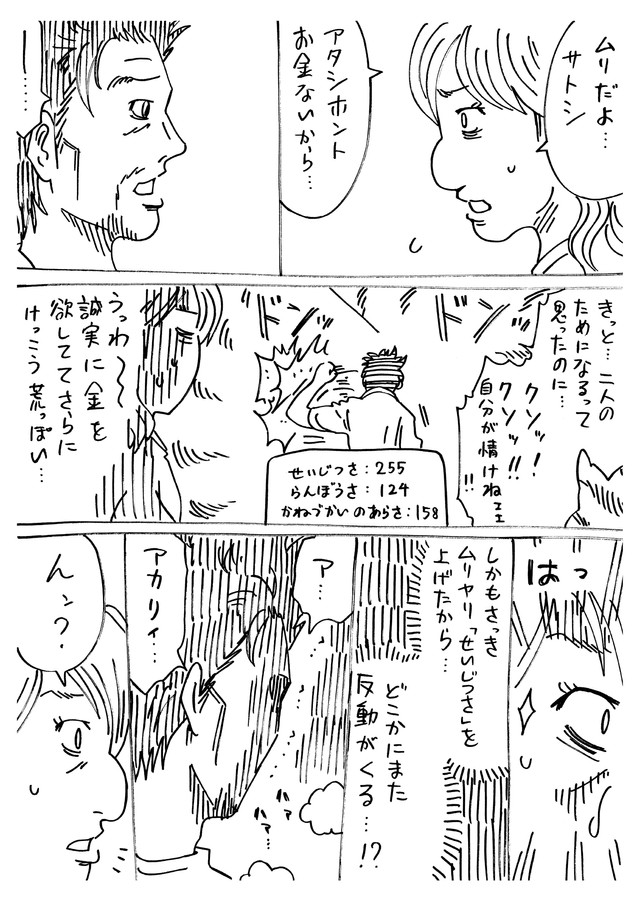 ムリだよ…
サトシ
アタシホント
お金ないから…
……
きっと…二人の
ためになるって
思ったのに…
クソッ!
クソッ!!
自分が情けねェェ
!!
せいじつさ:255
らんぼうさ:124
かねづかいのあらさ:158
うっわ～～
誠実に金を
欲しててさらに
けっこう荒っぽい…
はっ
しかもさっき
ムリヤリ「せいじつさ」を
上げたから…
どこかにまた
反動がくる…!?
ア…
アカリィ…
ハァ
ハァ…
んン?